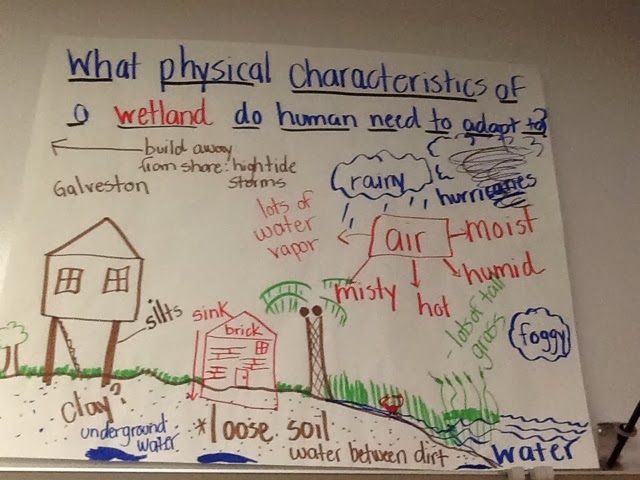 What physical characteristics of
a wetland do human need to adapt to?
build away
from shore: high tide
storms
Galveston
rainy
&
hurricanes
lots of
water
vapor
air
moist
humid
hot
misty
- lots of tall
grass
foggy
silts
sink
brick
clay?
underground
water
*loose soil
water between dirt
water